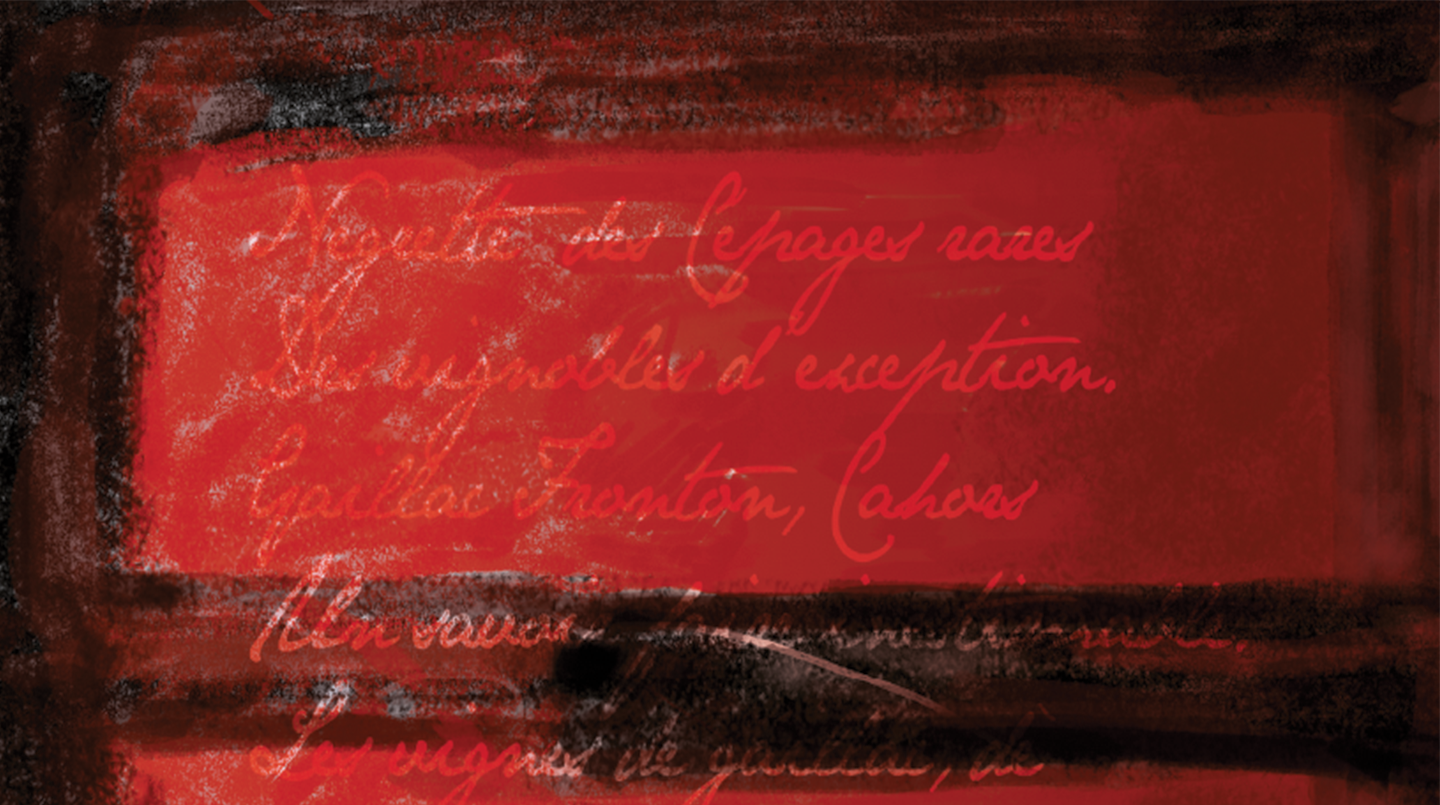 Négrette des Cépages rares
Des vignobles d'exception.
Gaillac Fronton, Cahors
Un savoir
Les vignes de gaillac, de